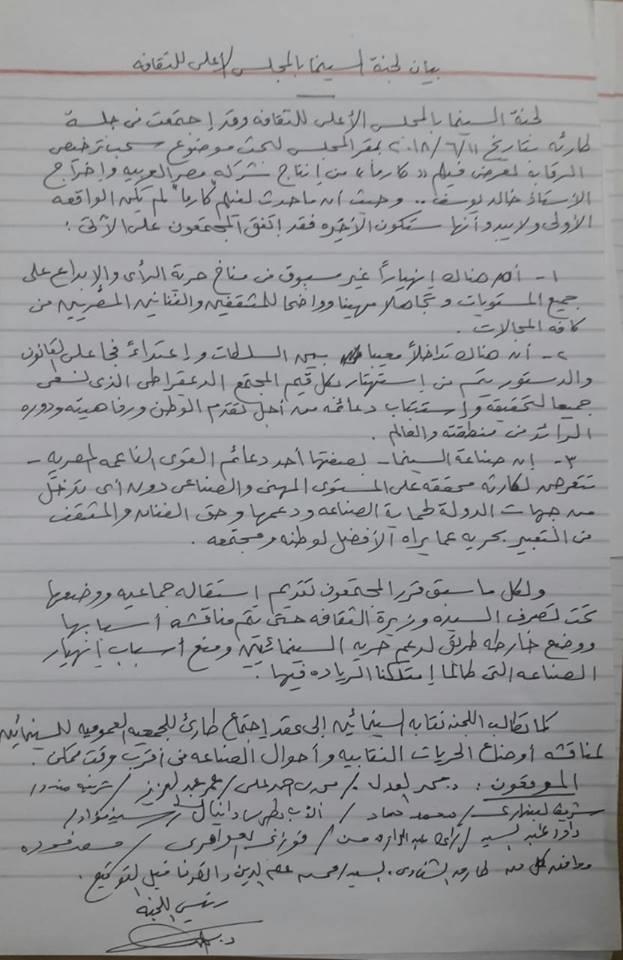 بيان لجنة السينما بالمجلس الأعلى للثقافه
لجنة السينما بالمجلس الأعلى للثقافه وقد إجتمعت فى جلسة
طارئه بتاريخ ٢٠١٨/٦/١١ بمقر المجلس لبحث موضوع سحب ترخيص
الرقابة لعرض فيلم "كارما" من إنتاج شركه مصر العربيه وإخراج
الأستاذ خالد يوسف .. وحيث أن ماحدث لفيلم "كارما" لم يكن الواقعه
الأولى ولا يبدو أنها ستكون الأخيره فقد إتفق المجتمعون على الآتى:
١- أن هناك إنهياراً غير مسبوق فى مناخ حرية الرأى والإبداع على
جميع المستويات وتجاهلاً مهينا وواضحا للمثقفين والفنانين المصريين من
كافه المجالات.
٢- أن هناك تداخلاً معيبا بين السلطات وإعتداءً فجا على القانون
والدستور يتم فى إستهتار بكل قيم المجتمع الديمقراطى الذى نسعى
جميعا لتحقيقه وإستتباب دعائمه من أجل تقدم الوطن ورفاهيته ودوره
الرائد فى منطقته والعالم.
٣- إن صناعة السينما - بصفتها أحد دعائم القوى الناعمه المصريه -
تتعرض لكارثه محققه على المستوى المهنى والصناعى دون أى تدخل
من جهات الدولة لحماية الصناعه ودعمها وحق الفنان والمثقف
فى التعبير بحريه عما يراه الأفضل لوطنه ومجتمعه.
ولكل ما سبق قرر المجتمعون تقديم إستقاله جماعيه ووضعها
تحت تصرف السيده وزيرة الثقافه حتى يتم مناقشه أسبابها
ووضع خارطه طريق لدعم حرية السينمائيين ومنع أسباب إنهيار
الصناعه التى طالما إمتلكنا الرياده فيها.
كما تطالب اللجنه نقابه السينمائيين إلى عقد إجتماع طارئ للجمعيه العموميه للسينمائيين
لمناقشه أوضاع الحريات النقابيه وأحوال الصناعه فى أقرب وقت ممكن.
الموقعون: د. محمد العدل / / عمر عبد العزيز /
شريف البندارى / محمد حماد / الأب بطرس دانيال /
داود عبد السيد / / فوزى العوامرى / مسعد فوده
موافقه كل من طارق الشناوى. السيد/ محسن علم الدين قبل التوقيع.
رئيس اللجنه